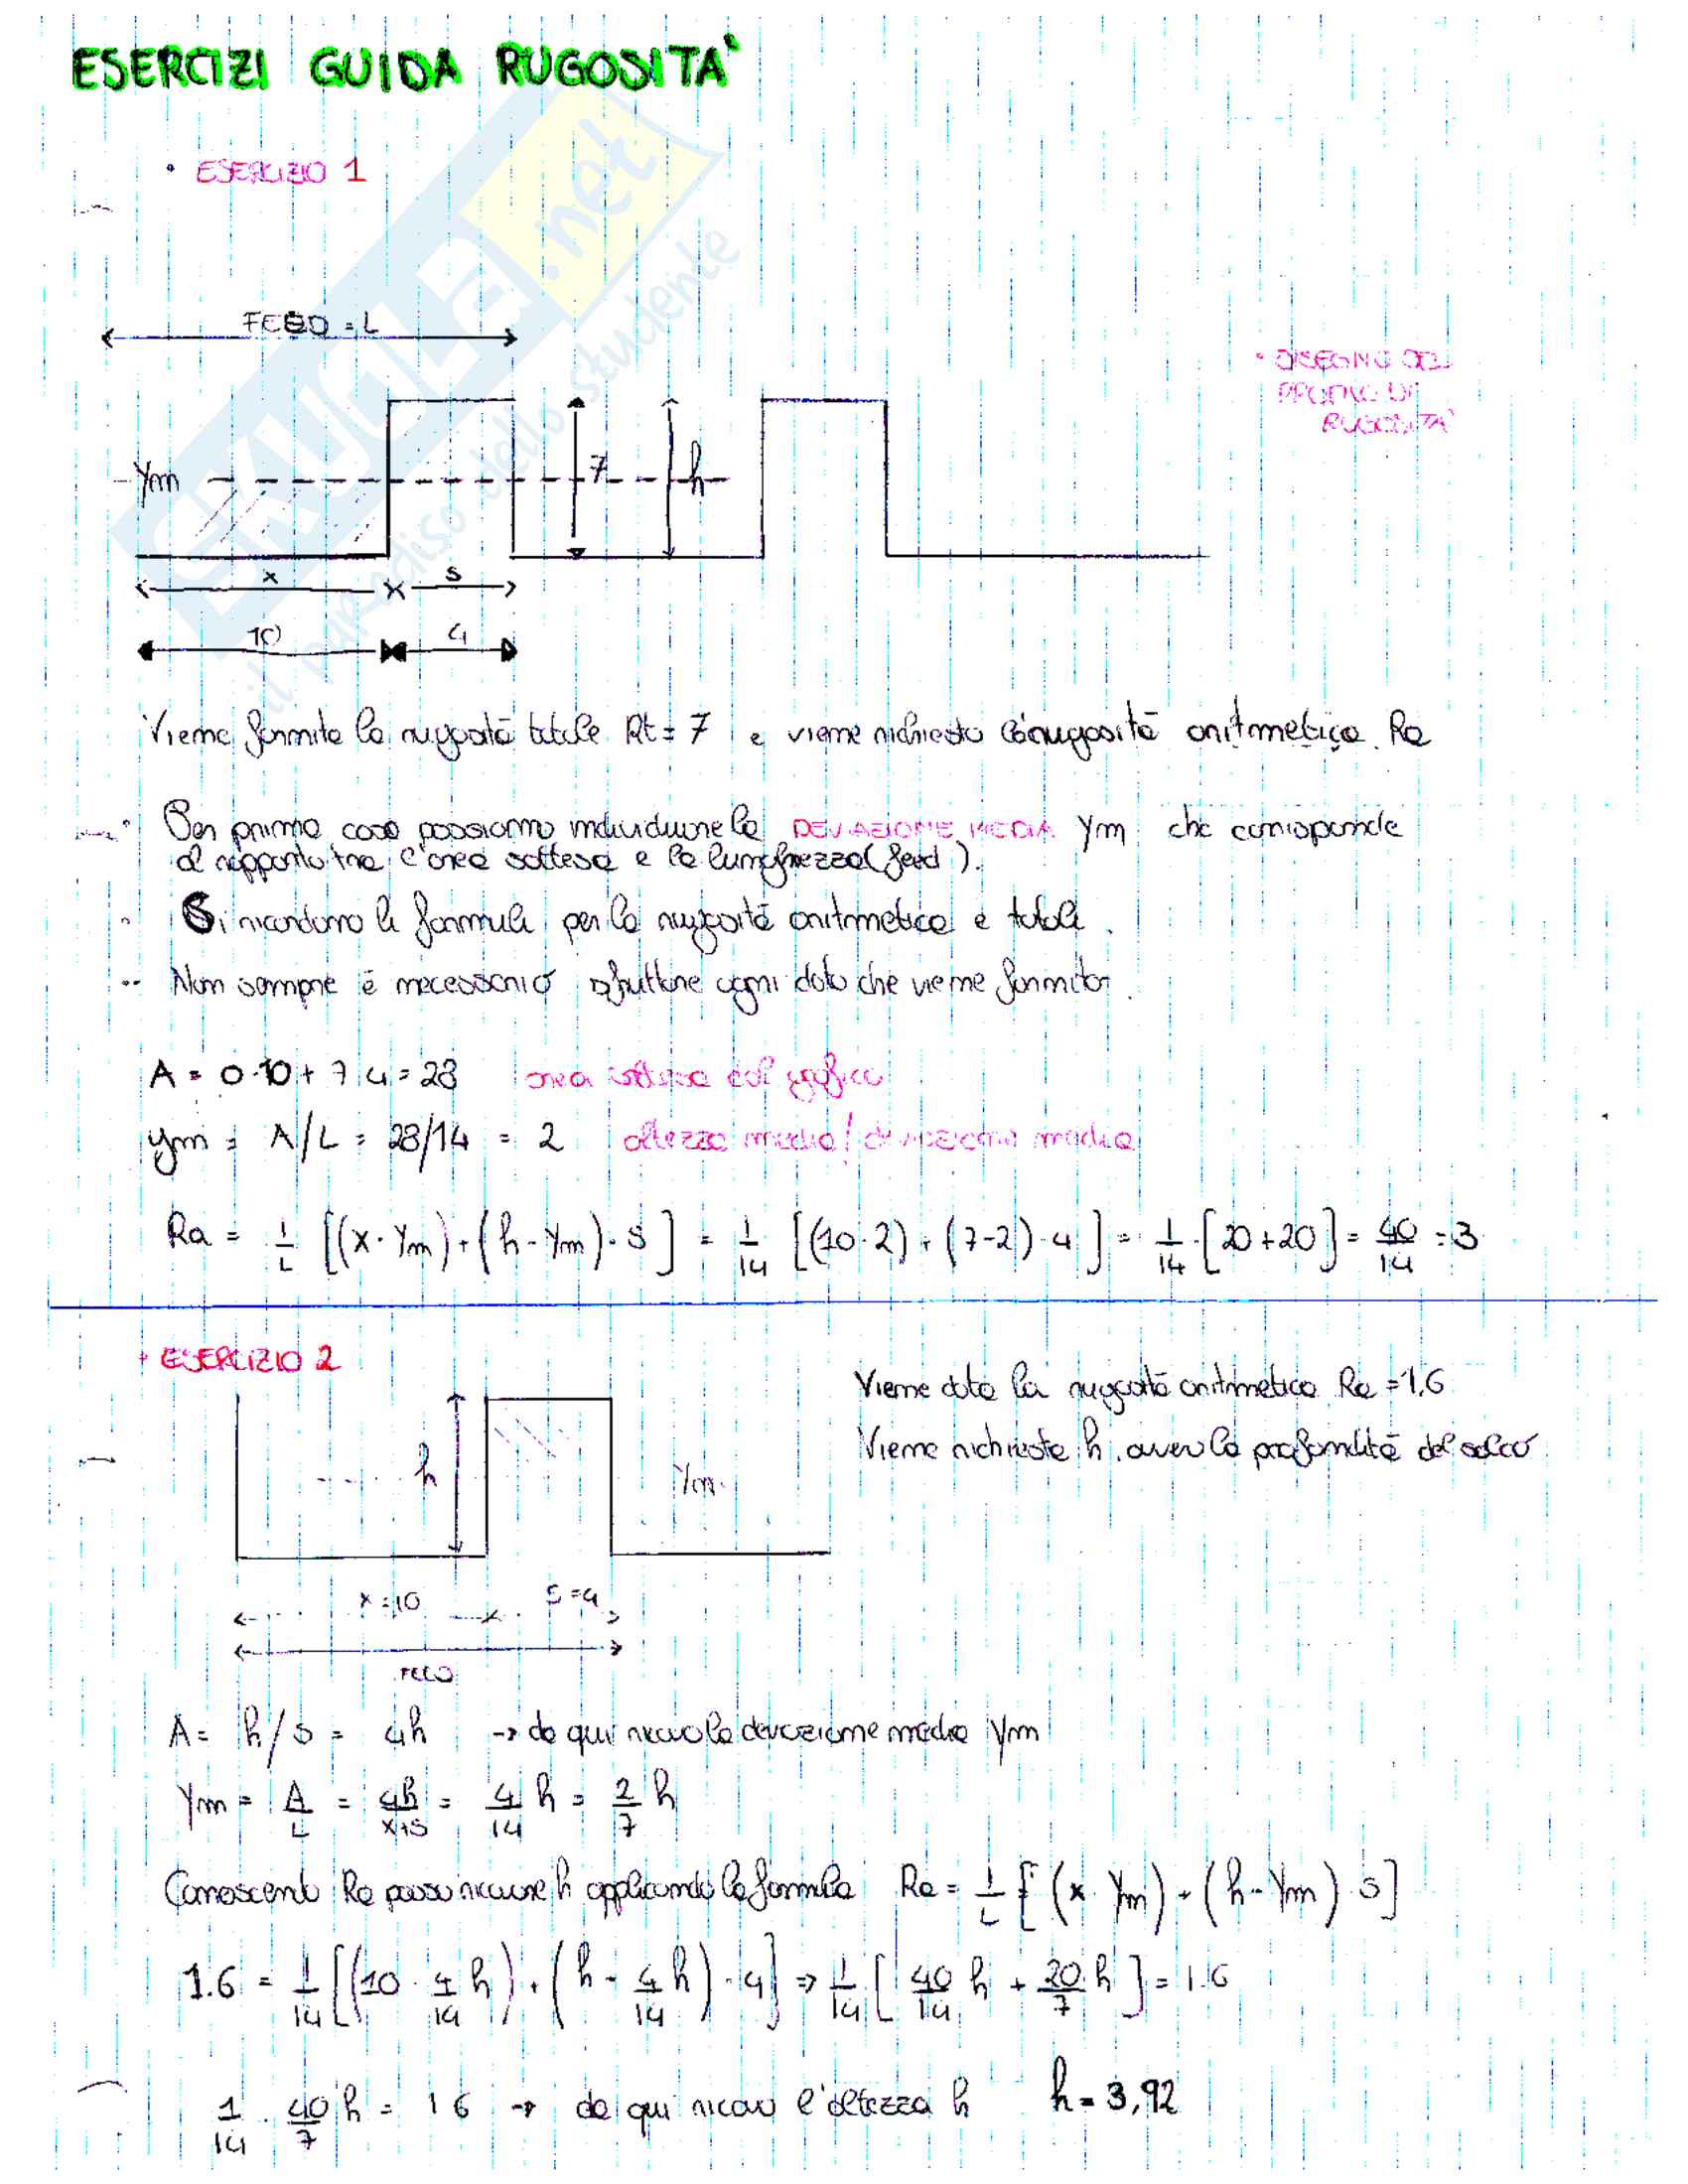 ESERCIZI GUIDA RUGOSITA'
• ESERCIZIO 1
FEED = L
• DISEGNO DEL
PROFILO DI
RUGOSITA'
Ym
7
h
x
s
10
4
Viene fornita la rugosità totale Rt = 7 e viene richiesta la rugosità aritmetica Ra
Per prima cosa possiamo individuare la DEVIAZIONE MEDIA Ym che corrisponde
al rapporto tra l'area sottesa e la lunghezza (feed).
Si ricordano le formule per la rugosità aritmetica e totale.
Non sempre è necessario sfruttare ogni dato che viene fornito.
A = 0·10 + 7·4 = 28 area sottesa dal grafico
ym = A/L = 28/14 = 2 altezza media / deviazione media
Ra = 1/L [(x·Ym) + (h-Ym)·s] = 1/14 [(10·2) + (7-2)·4] = 1/14·[20+20] = 40/14 = 3
• ESERCIZIO 2
Viene data la rugosità aritmetica Ra = 1,6
Viene richiesta h, ovvero la profondità del solco
h
Ym
x = 10
S = 4
FEED
A = h/s = 4h → da qui ricavo la deviazione media Ym
Ym = A/L = 4h/x+s = 4/14 h = 2/7 h
Conoscendo Ra posso ricavare h applicando la formula Ra = 1/L [(x·Ym) + (h-Ym)·s]
1.6 = 1/14 [(10·4/14 h) + (h - 4/14 h)·4] ⇒ 1/14 [40/14 h + 20/7 h] = 1.6
1/14 · 40/7 h = 1 6 → da qui ricavo l'altezza h h = 3,92
SKUOLA.net
il paradiso dello studente